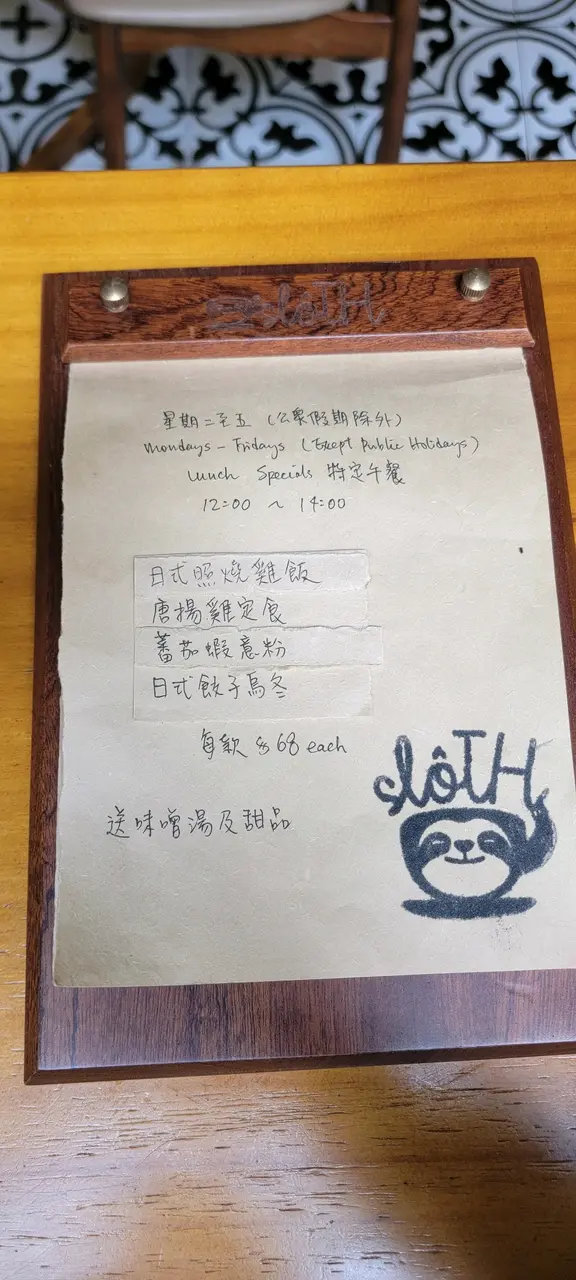 slôTH
星期二至五 (公衆假期除外)
Mondays - Fridays (Except Public Holidays)
Lunch Specials 特定午餐
12:00 ~ 14:00
日式照燒雞飯
唐揚雞定食
蕃茄蝦意粉
日式餃子烏冬
每款 $68 each
送味噌湯及甜品
slôTH